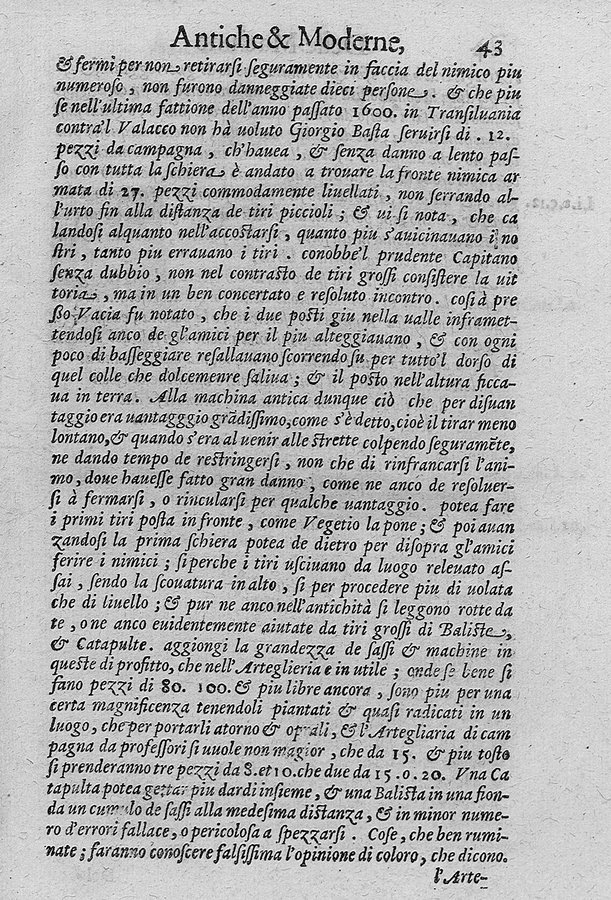 Antiche & Moderne, 43
& fermi per non retirarsi seguramente in faccia del nimico piu
numeroso, non furono danneggiate dieci persone. & che piu
se nell'ultima fattione dell'anno passato 1600. in Transiluania
contra'l Valacco non hà voluto Giorgio Basta seruirsi di. 12.
pezzi da campagna, ch'hauea, & senza danno a lento pas-
so con tutta la schiera è andato a trouare la fronte nimica ar
mata di 27. pezzi commodamente liuellati, non serrando al-
l'urto fin alla distanza de tiri piccioli; & vi si nota, che ca
landosi alquanto nell'accostarsi, quanto piu s'auicinauano i no
stri, tanto piu errauano i tiri. conobbe'l prudente Capitano
senza dubbio, non nel contrasto de tiri grossi consistere la uit
toria, ma in un ben concertato e resoluto incontro. cosi à pre
ßo Vacia fu notato, che i due posti giu nella ualle inframet-
tendosi anco de gl'amici per il piu alteggiauano, & con ogni
poco di basseggiare resallauano scorrendo su per tutto'l dorso di
quel colle che dolcemenre saliua; & il posto nell'altura ficca-
ua in terra. Alla machina antica dunque ciò che per disuan
taggio era uantagggio grādissimo, come s'è detto, cioè il tirar meno
lontano, & quando s'era al uenir alle strette colpendo seguramēte,
ne dando tempo de restringersi, non che di rinfrancarsi l'ani-
mo, doue hauesse fatto gran danno, come ne anco de resoluer-
si à fermarsi, o rincularsi per qualche vantaggio. potea fare
i primi tiri posta in fronte, come Vegetio la pone; & poi auan
zandosi la prima schiera potea de dietro per disopra gl'amici
ferire i nimici; si perche i tiri usciuano da luogo releuato as-
sai, sendo la scouatura in alto, si per procedere piu di uolata
che di liuello; & pur ne anco nell'antichità si leggono rotte da
te, o ne anco euidentemente aiutate da tiri grossi di Baliste,
& Catapulte. aggiongi la grandezza de sassi & machine in
queste di profitto, che nell'Arteglieria e in utile; onde se bene si
fano pezzi di 80. 100. & piu libre ancora, sono piu per una
certa magnificenza tenendoli piantati & quasi radicati in un
luogo, che per portarli atorno & oprali, & l'Artegliaria di cam
pagna da professori si uuole non magior, che da 15. & piu tosto
si prenderanno tre pezzi da 8. et 10. che due da 15. o. 20. Vna Ca
tapulta potea gettar piu dardi insieme, & una Balista in una fion-
da un cumulo de sassi alla medesima distanza, & in minor nume-
ro d'errori fallace, o pericolosa a spezzarsi. Cose, che ben rumi-
nate; faranno conoscere falsissima l'opinione di coloro, che dicono.
l'Arte-